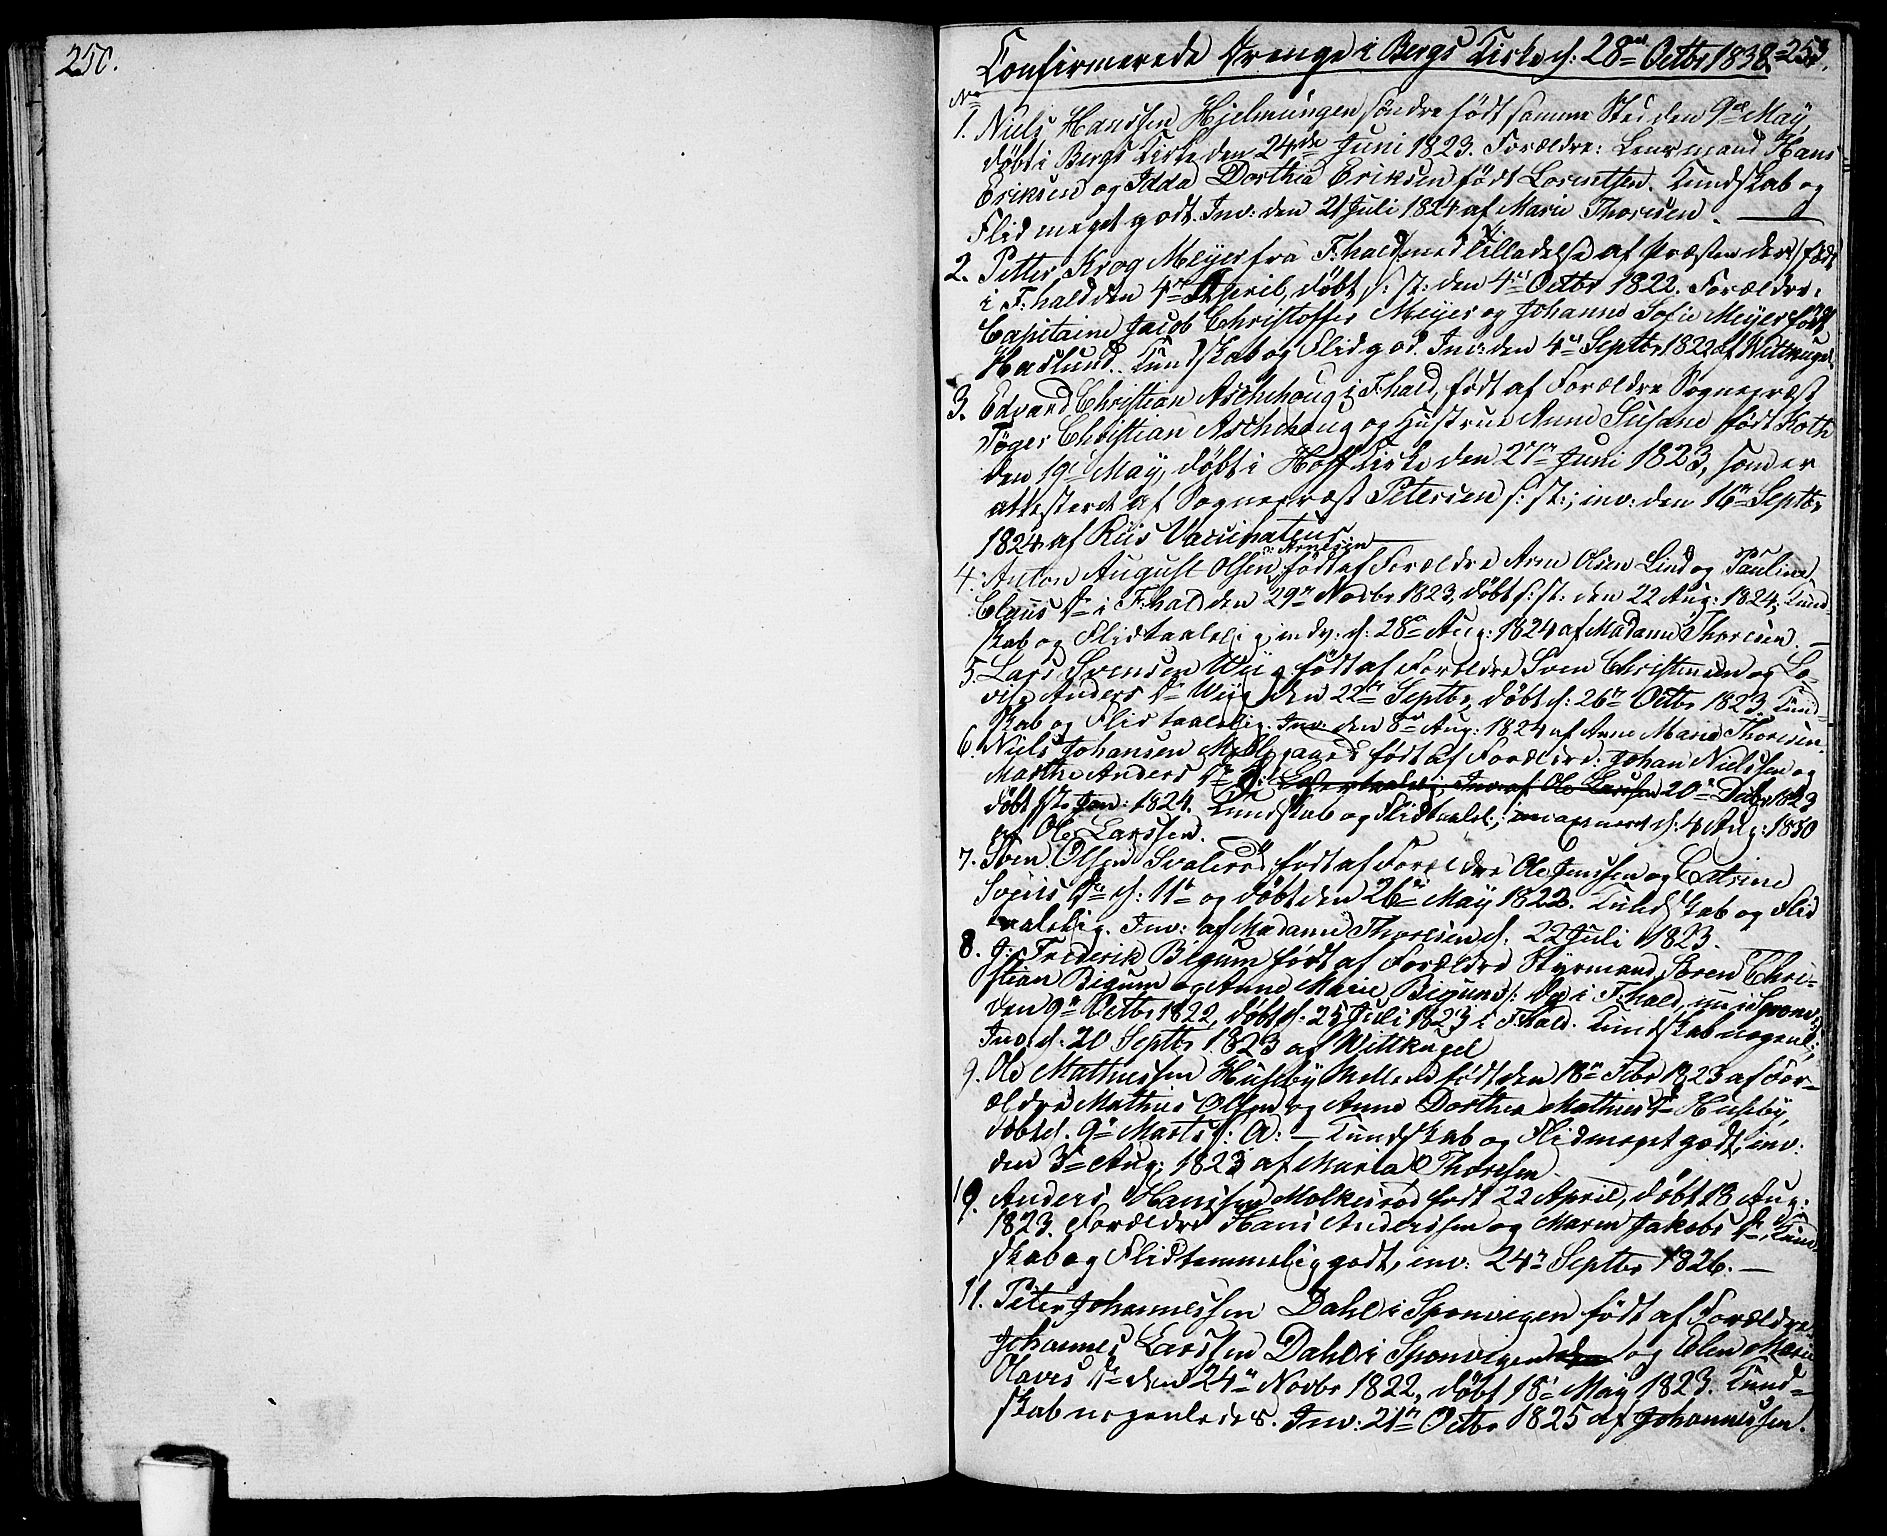 250.
Confirmerede Drenge i Bergs Kirke d: 28de Octbr 1838. 251.
No
1. Niels Hanssen Hjelmungen søndre født samme Sted den 9de May,
døbt i Bergs Kirke den 24de Juni 1823. Forældre: Lensmand Hans
Eriksen og Idda Dorthea Eriksen født Lorentsen. Kundskab og
Flid meget godt. Inv: den 21 Juli 1824 af Marie Thoresen.
2. Petter Krog Meyer fra F:hald med Tilladelse af Præsten der, født
i F:hald den 4de April, døbt s: St: den 4de Octbr 1822. Forældre:
Capitaine Jacob Christoffer Meyer og Johanne Sofie Meyer født
Hadlund. Kundskab og Flid god. Inv: den 4de Septbr 1822 af Wittkugel.
3. Edvard Christian Aschehoug i F:hald, født af Forældre Sognepræst
Tøger Christian Aschehoug og Hustrue Anne Susane født Roth
den 19de May, døbt i Hoff Kirke den 27de Juni 1823, som er
attesteret af Sognepræst Petersen s: St:; inv: den 16de Septbr
1824 af Riis Vaccinateur.
4. Anton August Olsen, ɔ: Arnesen født af Forældre Arne Olsen Lind og Pauline
Claus Dr i F:hald den 29de Novbr 1823, døbt s: St: den 22 Aug: 1824, Kund
skab og Flid taalelig, indv: d: 28de Aug: 1824 af Madame Thoresen. —
5. Lars Svensen Wiig født af Forældre Sven Christensen og Lo-
vise Anders Dr Wiig den 22de Septbr, døbt d: 26de Octbr 1823 Kund-
skab og Flid taalelig. Inv: den 8de Aug: 1824 af Anne Marie Thoresen.
6. Niels Johansen Midgaard født af Forældre: Johan Nielssen og
Marthe Anders Dr d: 20de Decbr 1823
døbt Jan: 1824. Kundskab og Flid taalel:; d: 4 Aug: 1830
af Ole Larssen.
7. Sven Olsen Svalerød, født af Forældre Ole Jenssen og Cathrine
Dr d: 11te og døbt den 26de May 1822. Kundskab og Flid
taalelig. Inv: af Madame Thoresen d: 22 Juli 1823.
8. J: Frederik Bigum født af Forældre Styrmand Søren Chri-
stian Bigum og Anne Marie Bigum i F:hald, nu i Sponv:
den 9de Octbr 1822, døbt d: 25 Juli 1823 i F:hald. Kundskab nogenl:
Inv: d: 20 Septbr 1823 af Wittkugel
9. Ole Mathiessen Huseby Mellem født den 18de Febr 1823 af For-
ældre Mathis Olsen og Anne Dorthea Mathis Dr Huseby,
døbt d: 9de Marts s: A: — Kundskab og Flid meget godt, inv:
den 3de Aug: 1823 af Maria Thoresen.
10. Anders Hanssen Molkerød født 22 April, døbt 13 Aug:
1823. Forældre Hans Anderssen og Maren Jakobs Dr, Kund-
skab og Flid temmelig godt, inv: 24de Septbr 1826. —
11. Peter Johannessen Dahl i Sponvigen født af Forældre
Johannes Larssen Dahl i Sponvigen og Elen Marie
Olaves Dr den 24de Novbr 1822, døbt 18de May 1823. Kund-
skab nogenledes. Inv: 21de Octbr 1825 af Johannessen.